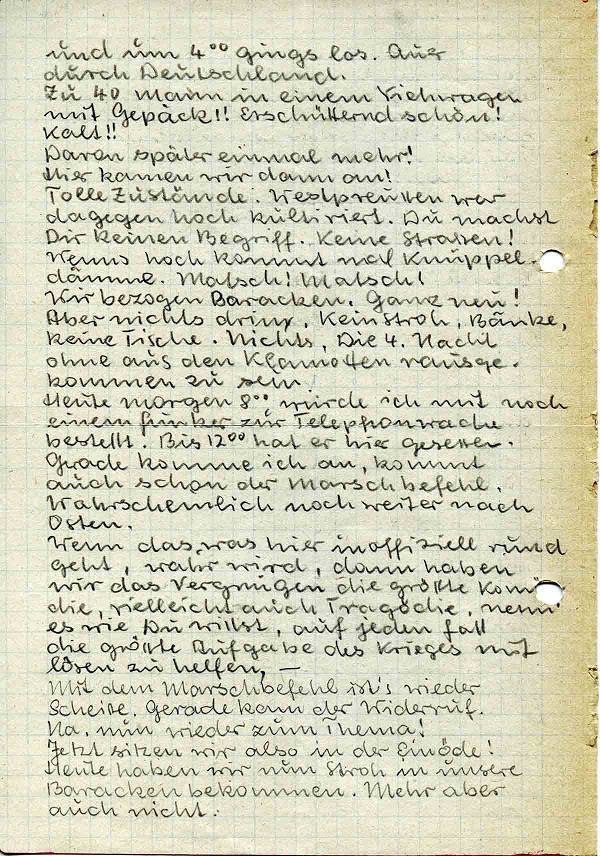 und um 4⁰⁰ gings los. Quer
durch Deutschland.
Zu 40 Mann in einem Viehwagen
mit Gepäck!! Erschütternd schön!
Kalt!!
Davon später einmal mehr!
Hier kamen wir dann an!
Tolle Zustände. Westpreußen war
dagegen noch kultiviert. Du machst
Dir keinen Begriff. Keine Straßen!
Wenns hoch kommt mal Knüppel-
dämme. Matsch! Matsch!
Wir bezogen Baracken. Ganz neu!
Aber nichts drinn, Kein Stroh, Bänke,
keine Tische. Nichts, Die 4. Nacht
ohne aus den Klamotten rausge-
kommen zu sein.
Heute morgen 8⁰⁰ wurde ich mit noch
einem Funker zur Telephonwache
bestellt! Bis 12⁰⁰ hat er hier gesessen.
Gerade komme ich an, kommt
auch schon der Marschbefehl.
Wahrscheinlich noch weiter nach
Osten.
Wenn das, was hier inoffiziell rund
geht, wahr wird, dann haben
wir das Vergnügen die größte Komö-
die, vielleicht auch Tragödie, nenn
es wie Du willst, auf jeden fall
die größte Aufgabe des Krieges mit
lösen zu helfen, —
Mit dem Marschbefehl ist's wieder
Scheiße. Gerade kam der Widerruf.
Na, nun wieder zum Thema!
Jetzt sitzen wir also in der Einöde!
Heute haben wir nun Stroh in unsere
Baracken bekommen. Mehr aber
auch nicht.